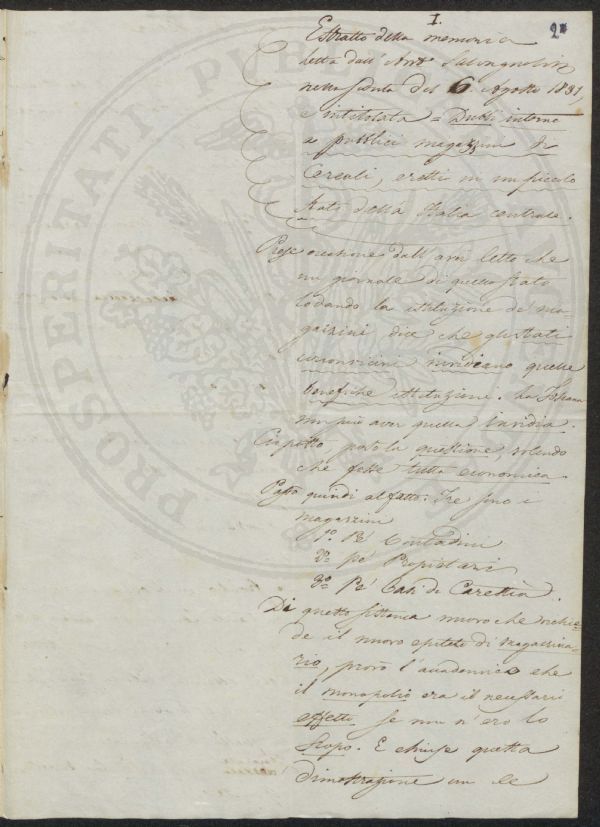 I.
2
Estratto della memoria
letta dall'Avv. Salvagnoli
nella seduta del 6 Agosto 1837,
e intitolata = Dubbi intorno
a pubblici magazzini di
Cereali, eretti in un piccolo
stato della Italia centrale.
Prese occasione dall'aver letto che
un giornale di questo stato
lodando la istituzione de' ma-
gazzini, dice che gli stati
circonvicini invidiano quelle
benefiche istituzione. La Toscana
non può aver questa invidia.
Ciò posto, postò la questione volendo
che fosse tutta economica.
Passò quindi al fatto: Tre sono i
magazzini
1º. Pe' Contadini
2º. pe' Proprietari
3º. Pe' Casi di Carestia.
Di questo sistema nuovo che richie-
de il nuovo epiteto di magazzina-
rio, provò l'accademico che
il monopolio era il necessario
effetto se non n'ero lo
scopo. E chiuse questa
dimostrazione con le
PROSPERITATI PUBLICAE